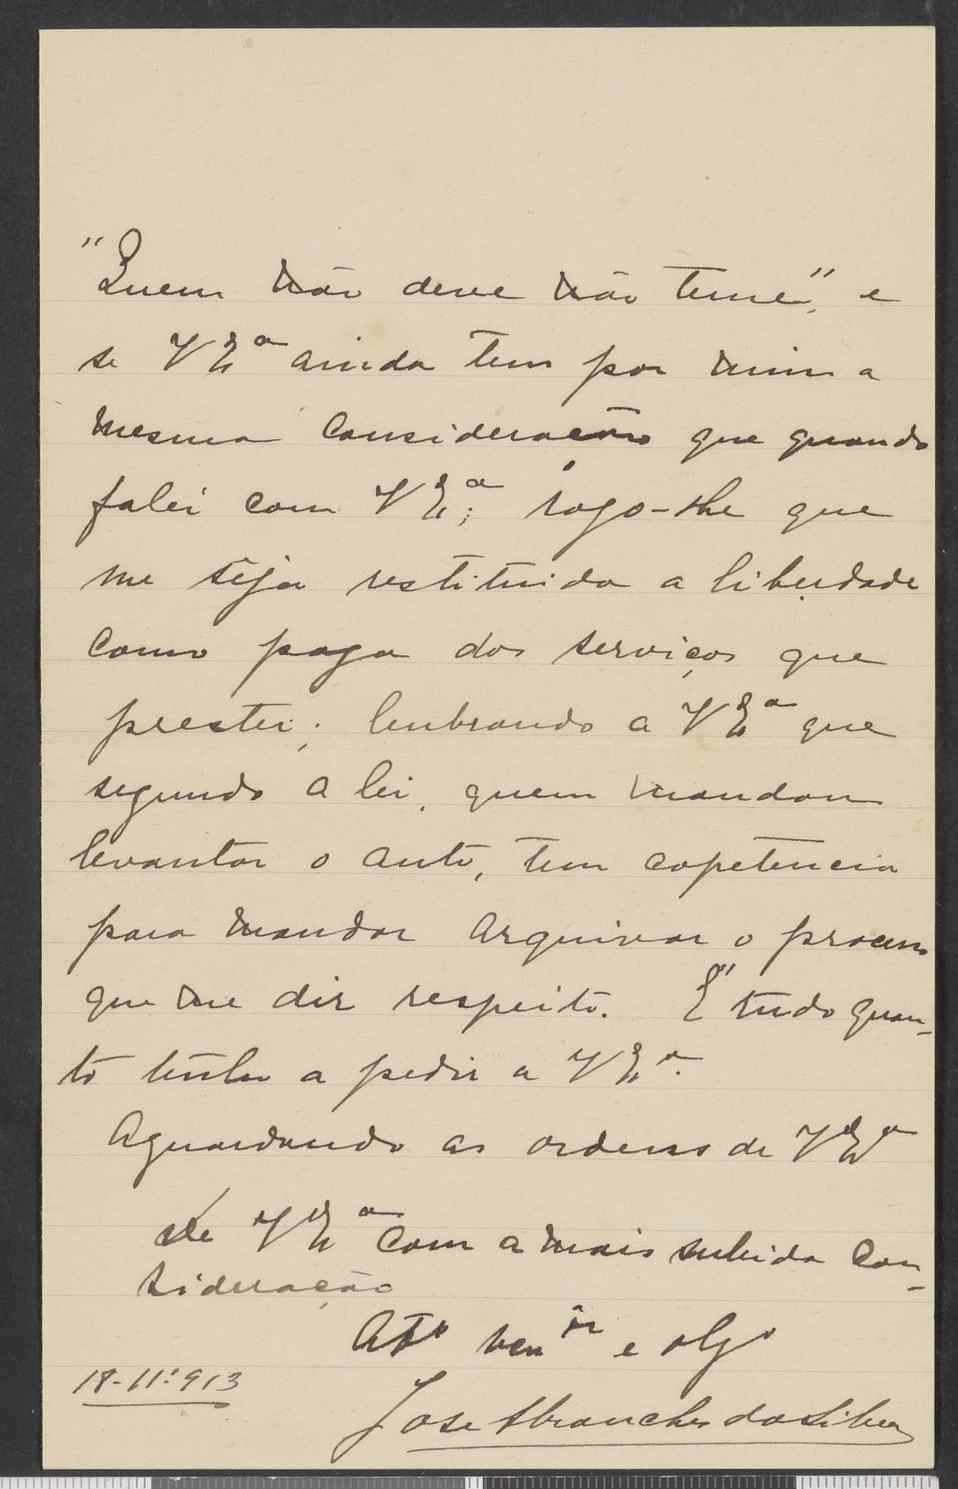 "Quem não deve não teme", e
se V Ex.ª ainda tem por mim a
mesma consideração que quando
falei com V Ex.ª; rogo-lhe que
me sêja restituida a liberdade
como paga dos serviços que
prestei; lembrando a V Ex.ª que
segundo a lei, quem mandou
levantar o auto, tem copetencia
para mandar arquivar o processo
que me diz respeito. É tudo quan-
to tenho a pedir a V Ex.ª.
Aguardando as ordens de V Ex.ª
De V Ex.ª com a mais subida con-
sideração
Att.º ven.ºr e obg.º
18-11-913
Jose Abranches da Silva